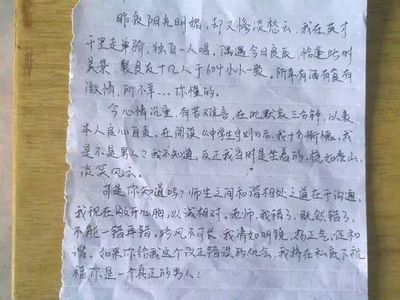 昨夜阳光明媚，却又惨淡愁云，我在英才
千里走单骑，独自一人喝。偶遇今日良辰，恰逢此时
美景，聚良友十几人于604小小一聚，所幸有酒有食有
激情，所不幸…你懂的。
今心情沉重，有苦难言，在此默哀三分钟，以表
本人良心自责。在阅读《中学生守则》后，我十分惭愧，我
是不是男人？我不知道，反正我当时是坐着的，稳如泰山，
谈笑风云。
可是你知道吗？师生之间和谐相处之道在于沟通，
我现在敞开心胸，以诚相对。老师，我错了，既然错了，
不能一错再错，歪风不可长，我清如明镜，扬正气，促和
谐。如果你给我这个改正错误的机会，我将在私底下祝
福你是一个真正的男人！